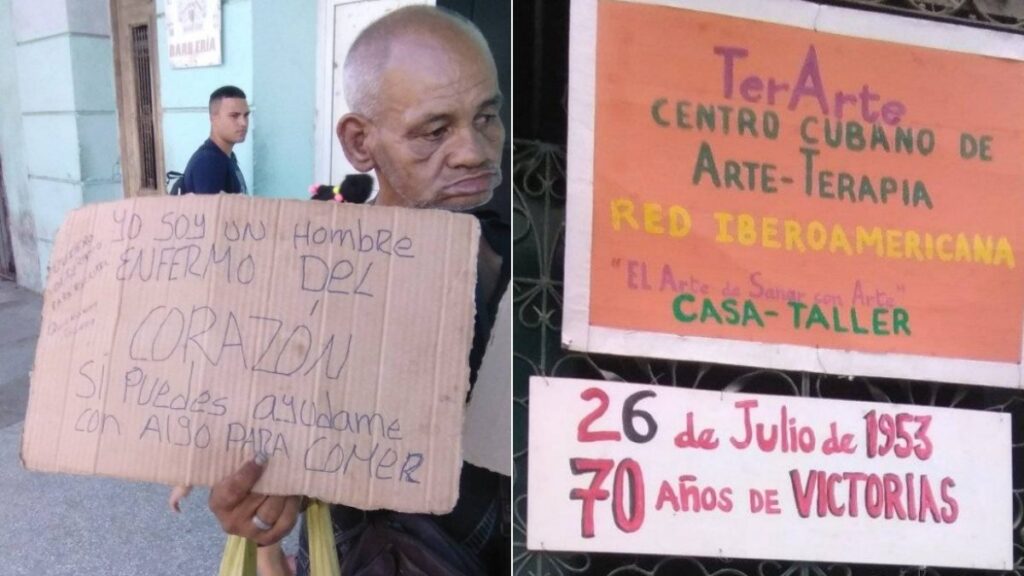 BARBERÍA
YO SOY UN HOMBRE
ENFERMO DEL
CORAZÓN
SI PUEDES AYUDAME
CON ALGO PARA COMER
TerArte
CENTRO CUBANO DE
ARTE-TERAPIA
RED IBEROAMERICANA
"El Arte de Sanar con Arte"
CASA-TALLER
26 de Julio de 1953
70 Años DE VICTORIAS